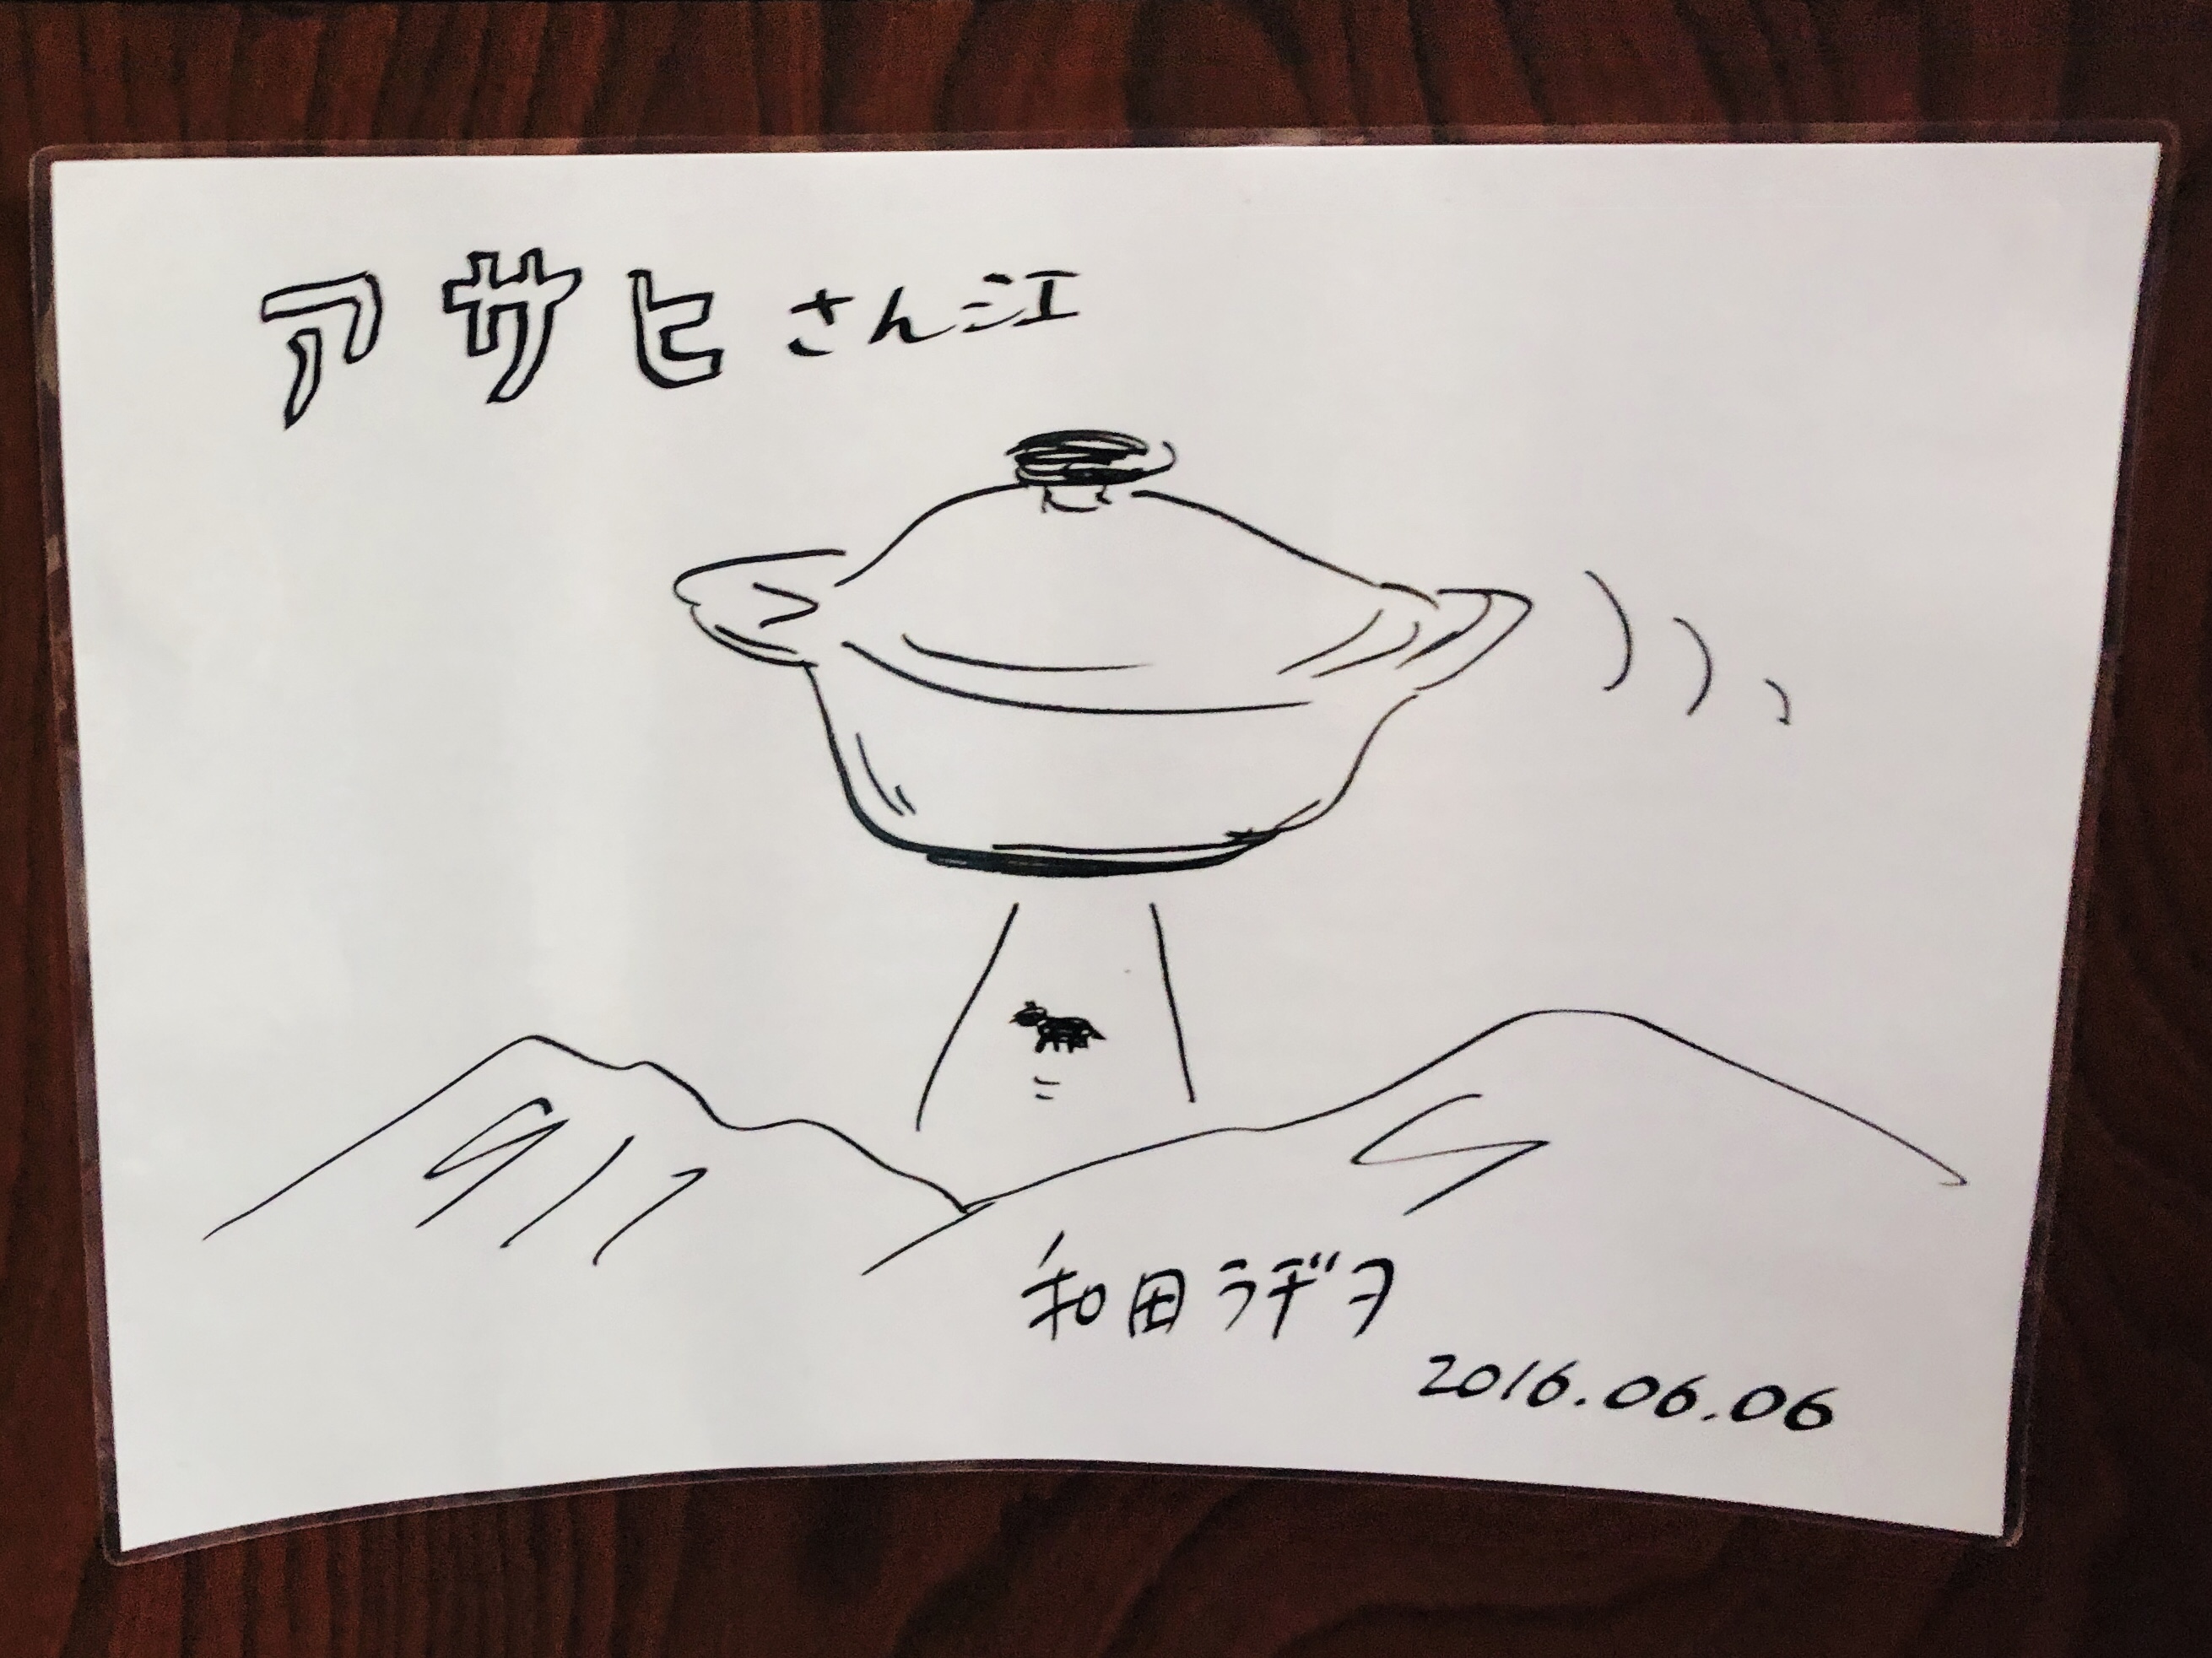 アサヒさん江
和田ラヂヲ
2016.06.06